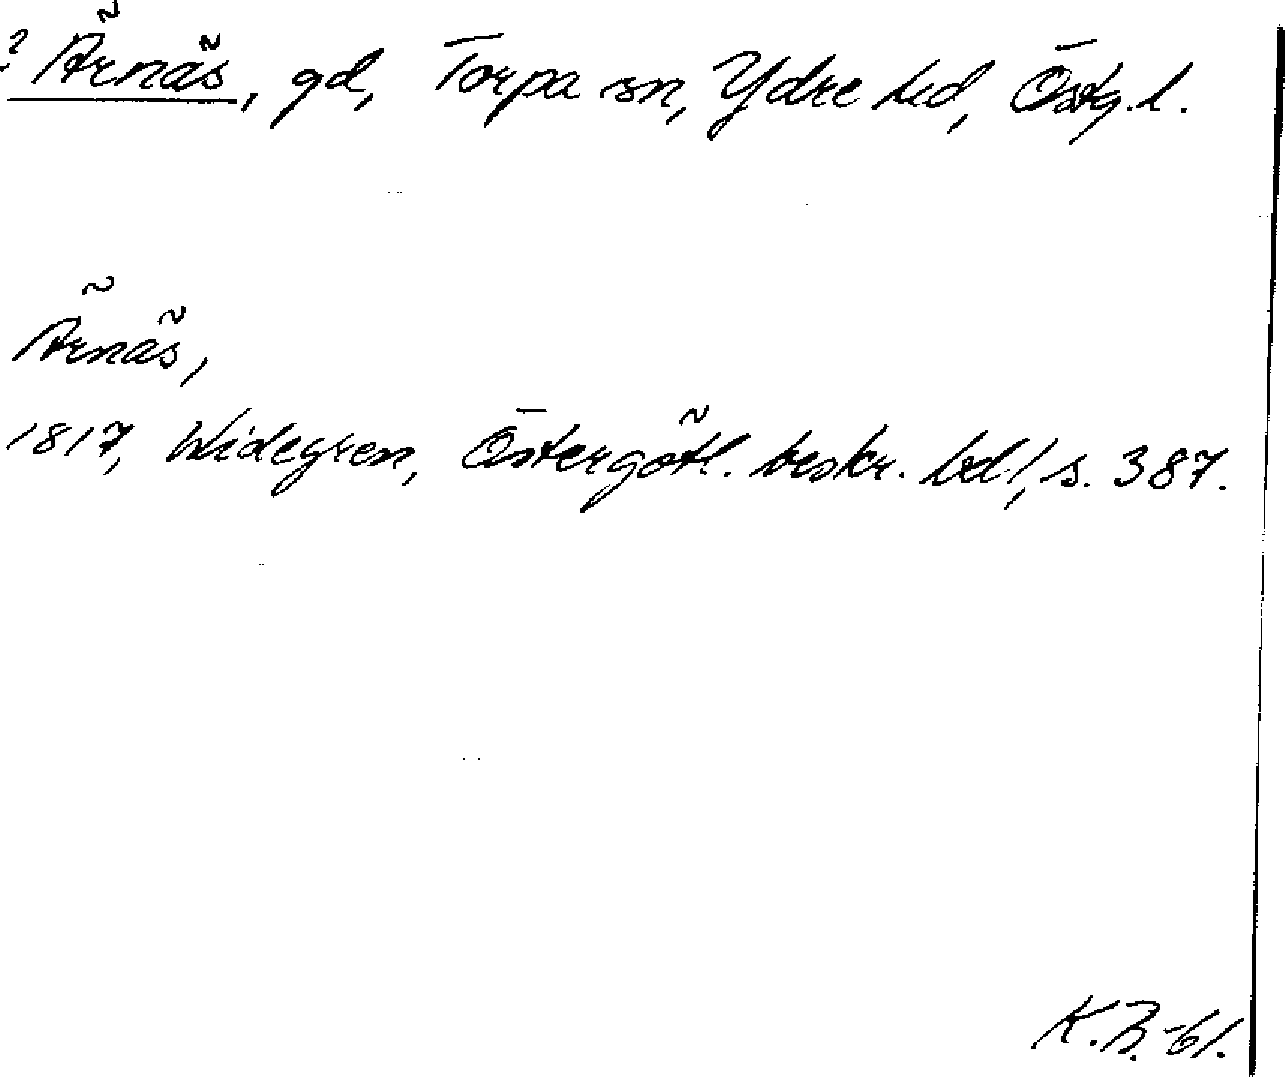 ? Ärnäs, gd, Torpa sn, Ydre hd, Östg. l.
Ärnäs,
1817, Widegren, Östergötl. beskr. bd 1, s. 387.
K.B. -61.